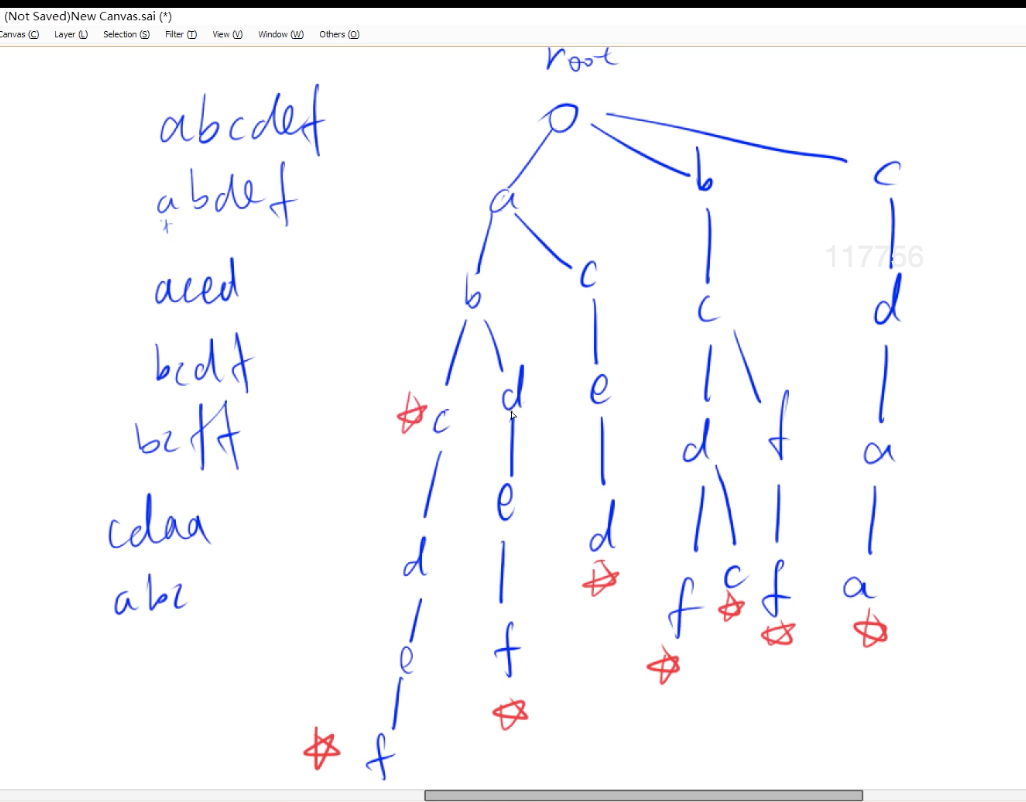 (Not Saved)New Canvas.sai (*)
Canvas (C) Layer (L) Selection (S) Filter (T) View (V) Window (W) Others (O)
root
abcdef
abdef
aced
bcdf
bcff
cdaa
abc
a b c
b c c d
c d e d f a
d e d f c f a
e f
f
117756